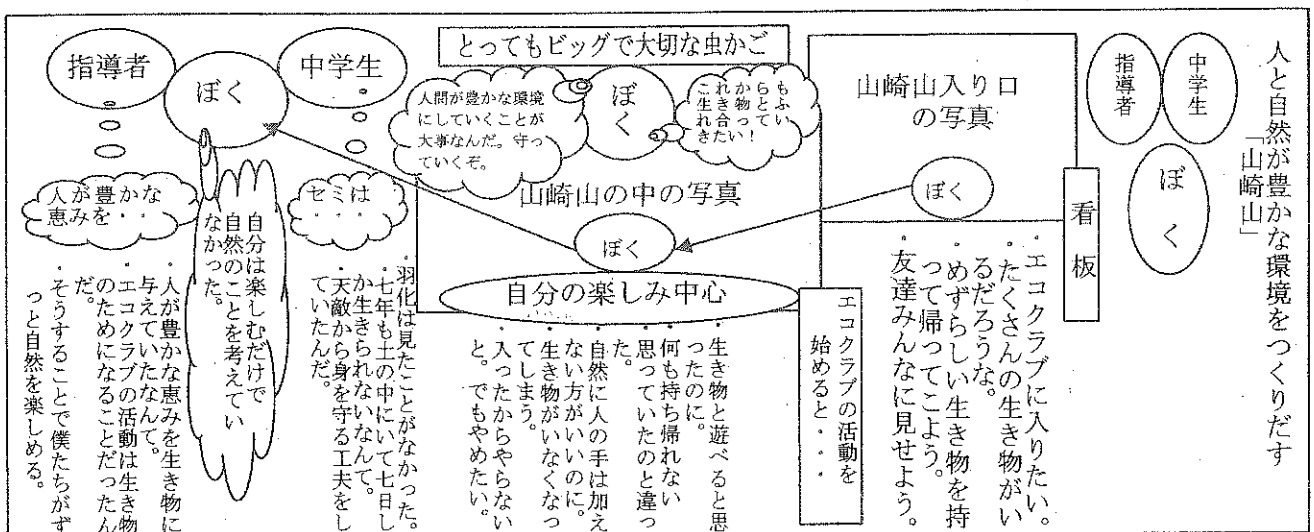 人と自然が豊かな環境をつくりだす
「山崎山」
中学生
指導者
ぼく
看板
山崎山入り口
の写真
ぼく
・エコクラブに入りたい。
・たくさんの生き物がい
るだろうな。
・めずらしい生き物を持
って帰ってこよう。
・友達みんなに見せよう。
とってもビッグで大切な虫かご
もふ
らとてい
これか物って
生き合
れきたい!
ぼく
人間が豊かな環境
にしていくことが
大事なんだ。守っ
ていくぞ。
山崎山の中の写真
ぼく
自分の楽しみ中心
エコクラブの活動を
始めると・・・
・生き物と遊べると思
ったのに。
・何も持ち帰れない
・思っていたのと違っ
た。
・自然に人の手は加え
ない方がいいのに。
・生き物がいなくなっ
てしまう。
・入ったからやらない
と。でもやめたい。
中学生
ぼく
指導者
セミは
・・・
・羽化は見たことがなかった。
・七年も土の中にいて七日し
か生きられないなんて。
・天敵から身を守る工夫をし
ていたんだ。
自分は楽しむだけで
自然のことを考えてい
なかった。
人が豊かな
恵みを・・
・人が豊かな恵みを生き物に
与えていたなんて。
・エコクラブの活動は生き物
のためになることだったん
だ。
・そうすることで僕たちがず
っと自然を楽しめる。